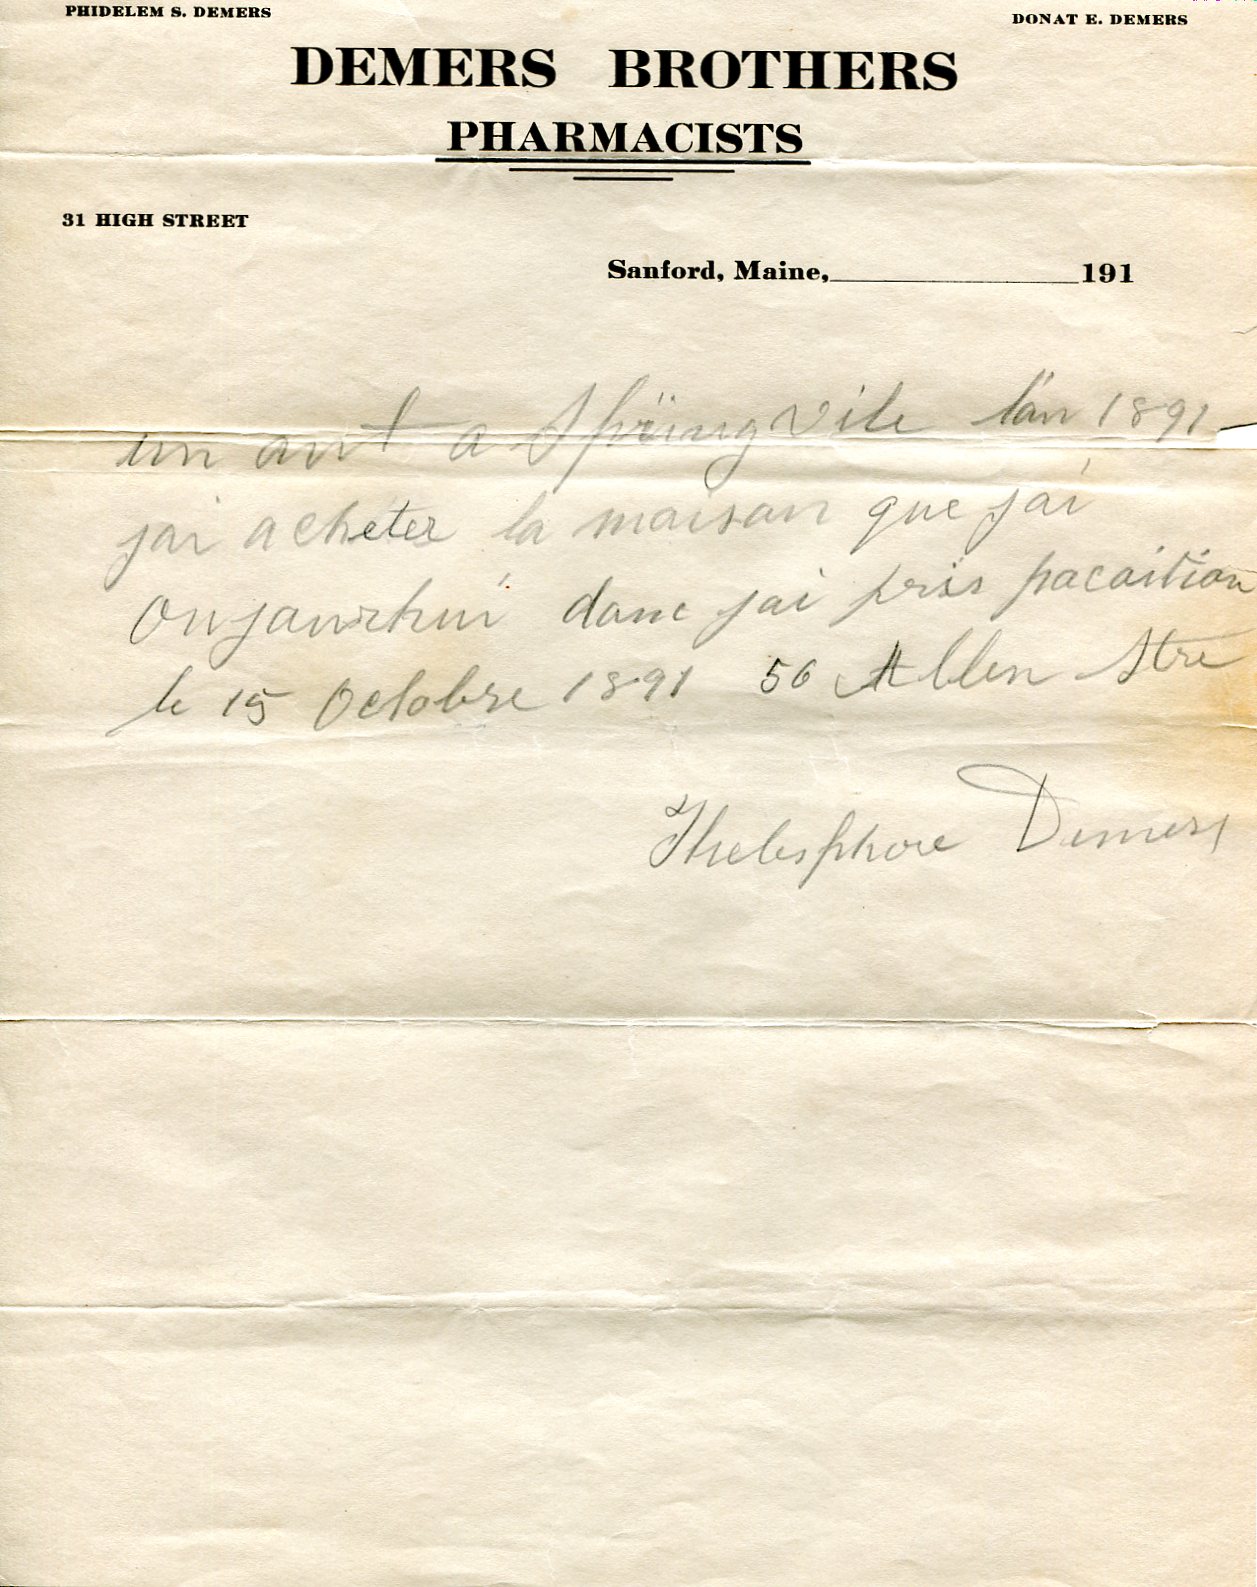 PHIDELEM S. DEMERS
DONAT E. DEMERS
DEMERS BROTHERS
PHARMACISTS
31 HIGH STREET
Sanford, Maine, 191
un ant a Springvile l'an 1891
jai acheter la maison que jai
oujourhui donc jai pris pacaition
le 15 Octobre 1891 56 Allen Stre
Thelesphore Demers